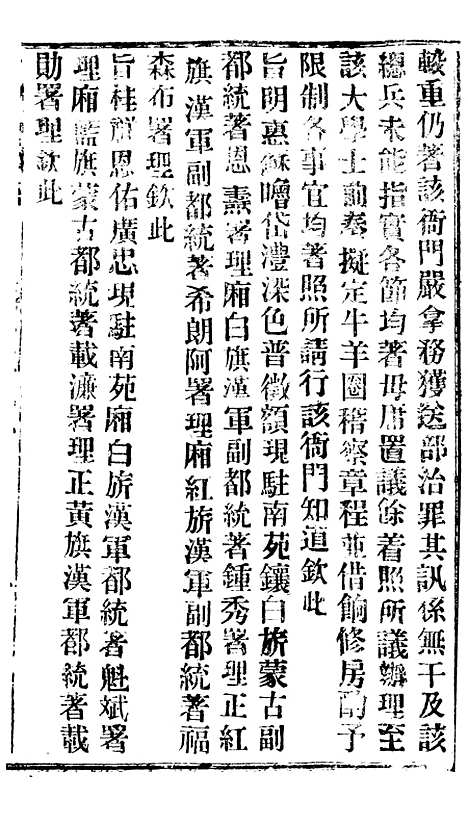 較重仍著該衙門嚴拿務獲送部治罪其訊係無干及該
總兵未能指實各節均著毋庸置議餘着照所議辦理至
該大學士勳奏擬定牛羊圈稽察章程並借餉修房酌予
限制各事宜均著照所請行該衙門知道欽此
旨明惠穌噲岱澧深色普徵額現駐南苑鑲白旂蒙古副
都統著恩燾署理廂白旗漢軍副都統著鍾秀署理正紅
旗漢軍副都統著希朗阿署理廂紅旂漢軍副都統著福
森布署理欽此
旨桂祥恩佑廣忠現駐南苑廂白旂漢軍都統著魁斌署
理廂藍旗蒙古都統著載濂署理正黃旗漢軍都統著載
勛署理欽此